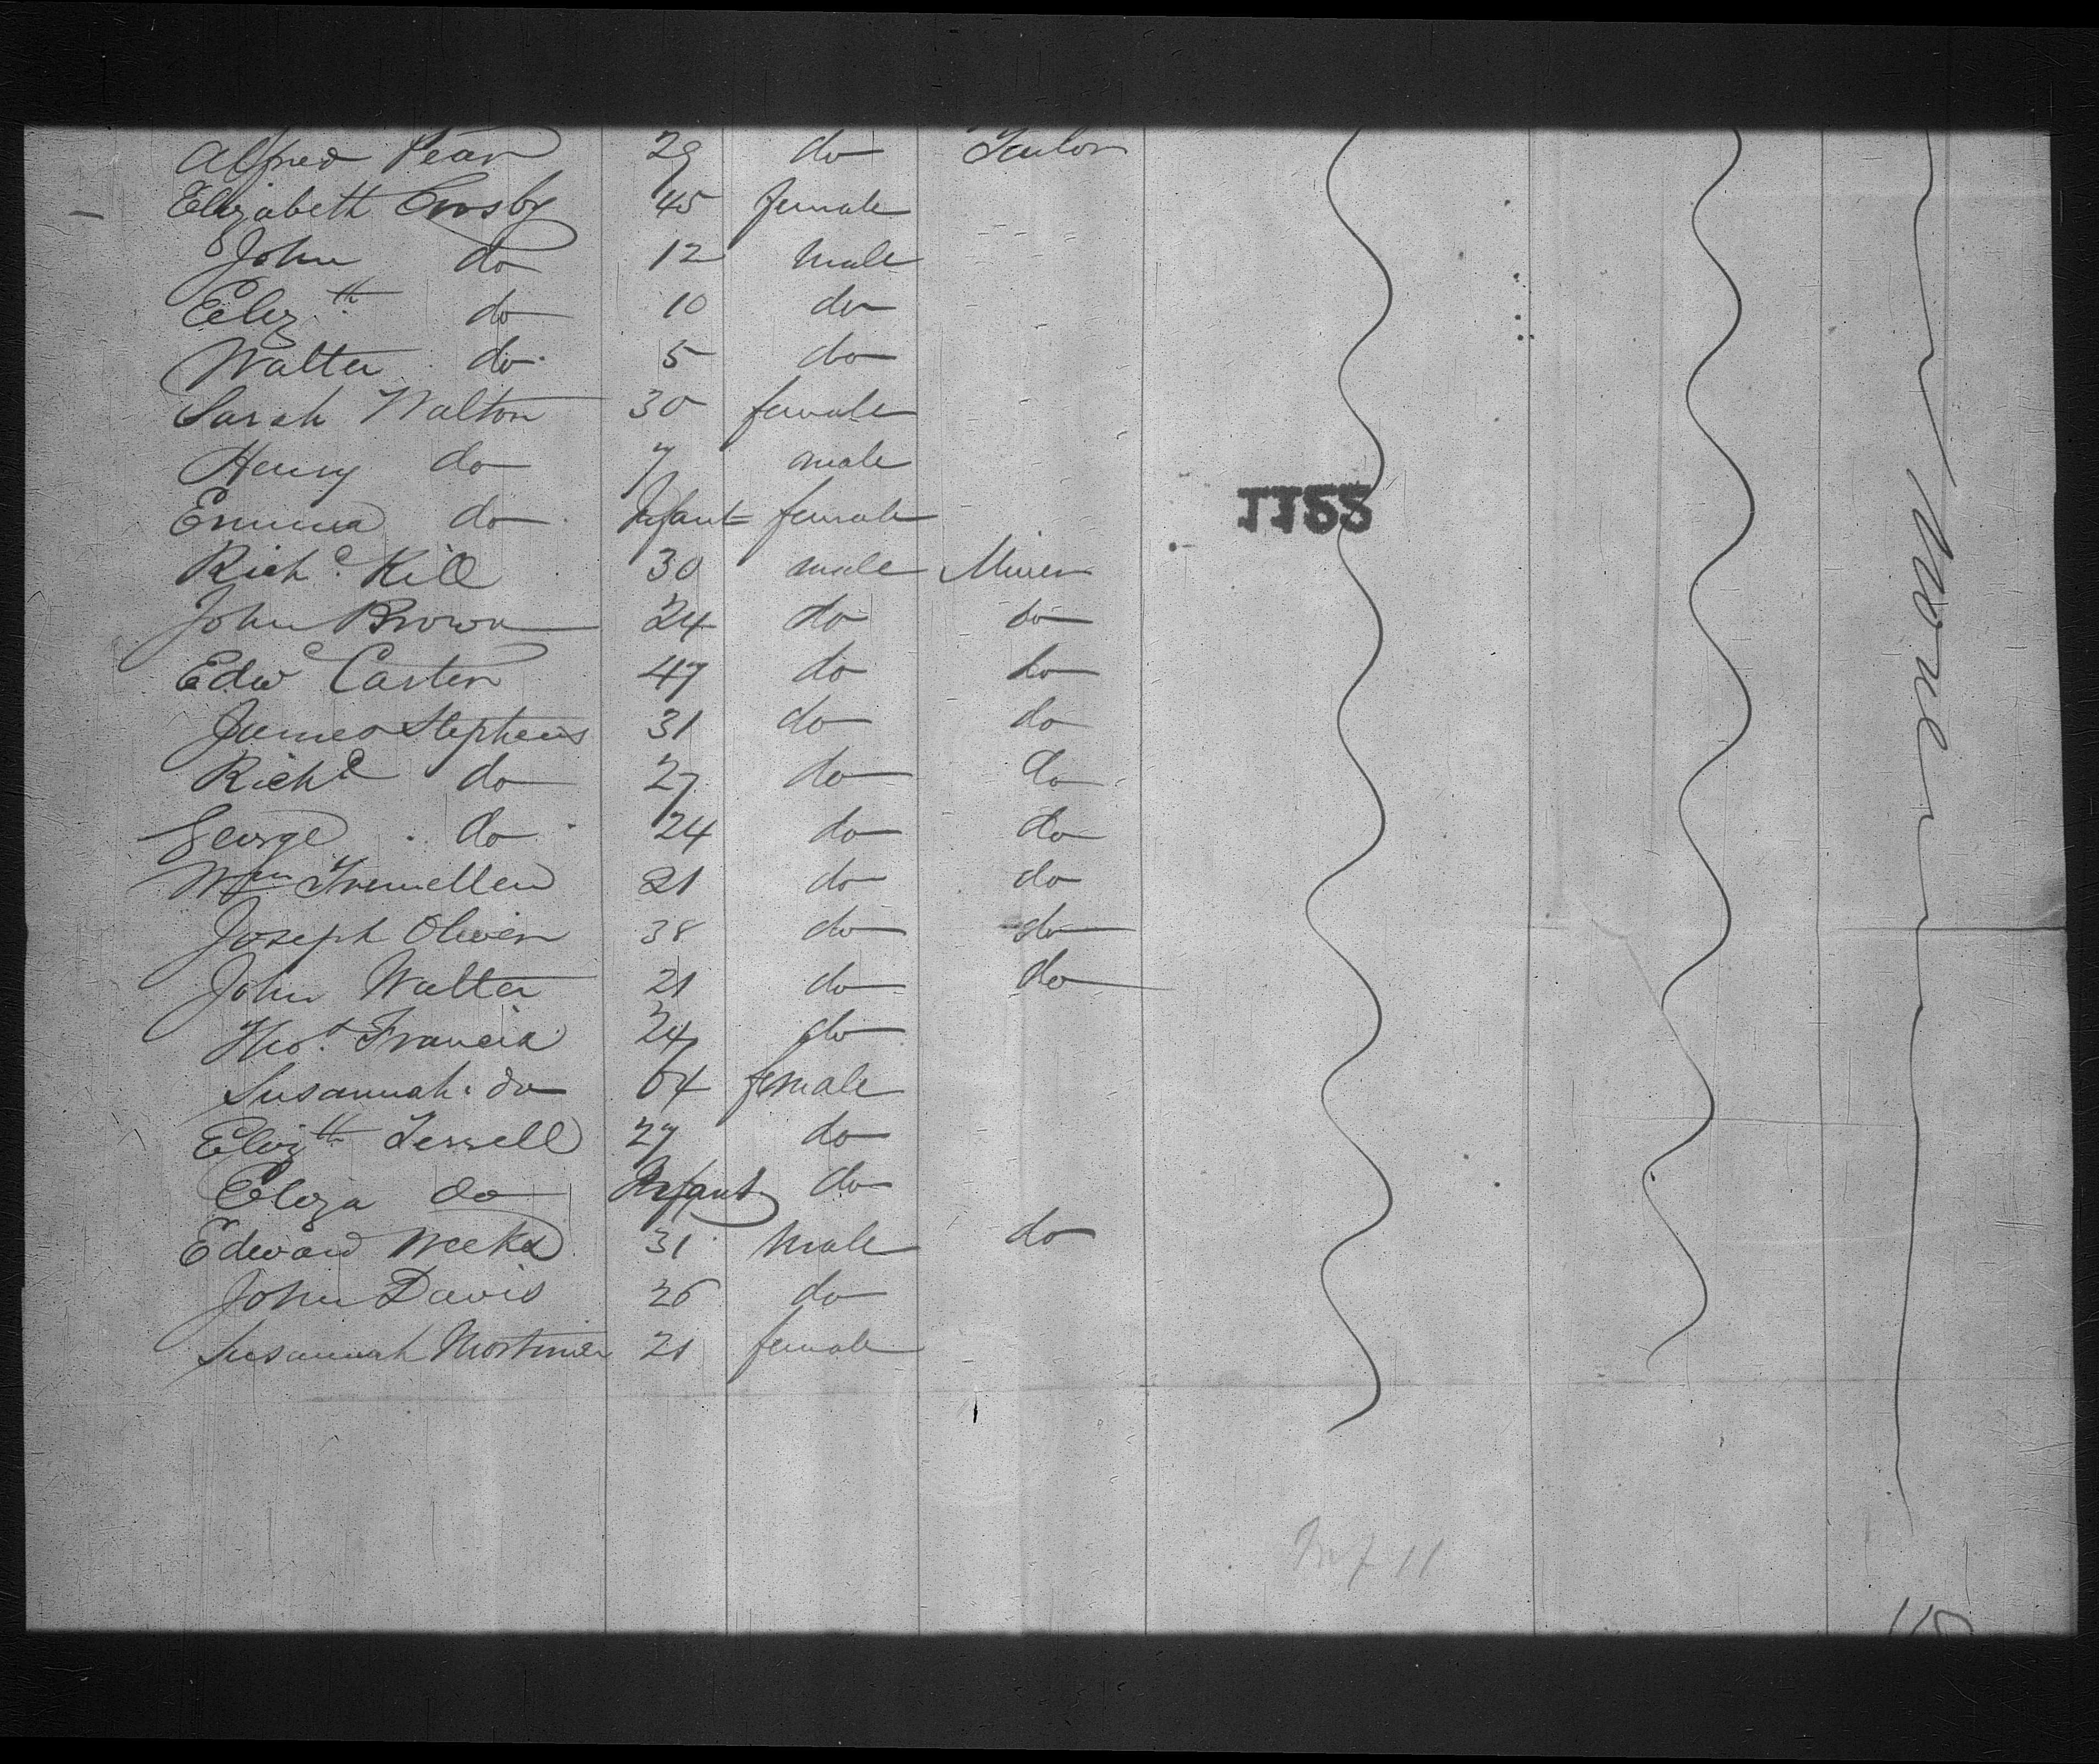 Alfred Pearn 29 do Tailor
Elizabeth Crosby 45 female
John do 12 male
Eliz.th do 10 do
Walter do 5 do
Sarah Walton 30 female
Henry do 7 male
Emma do Infant female
Rich.d Kill 30 male Miner
John Brown 24 do do
Edw.d Carter 47 do do
James Stephens 31 do do
Rich.d do 27 do do
George do 24 do do
Wm Tremellen 21 do do
Joseph Oliver 38 do do
John Walter 21 do do
Tho.s Francis 24 do
Susannah do 64 female
Eliz.th Terrell 27 do
Eliza do Infant do
Edward Weeks 31 male do
John Davis 26 do
Susannah Mortimer 21 female
1155
None
11